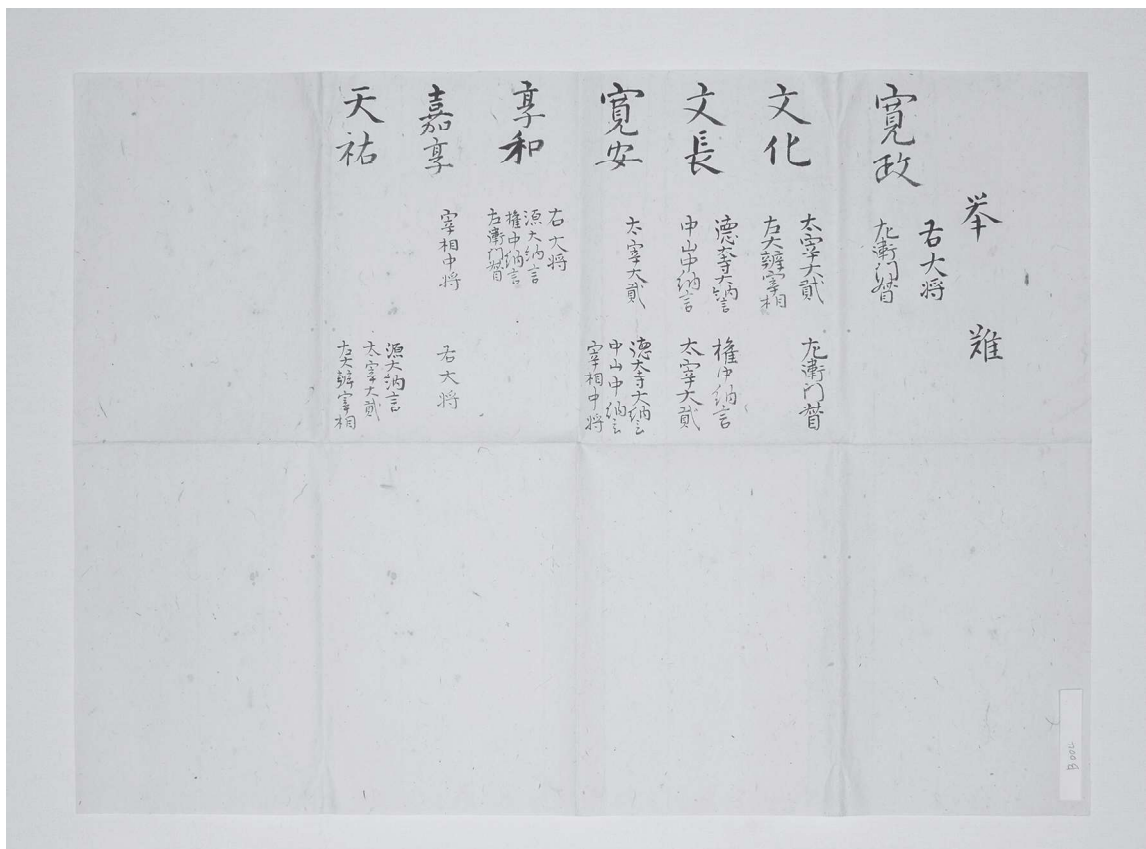 挙　難
寛政
右大将
左衛門督
文化
太宰大貳　左衛門督
左大辨宰相
文長
徳大寺大納言　権中納言
中山中納言　太宰大貳
寛安
太宰大貳　徳大寺大納言
中山中納言
宰相中将
享和
右大将
源大納言
権中納言
左衛門督
嘉享
宰相中将　右大将
天祐
源大納言
太宰大貳
左大辨宰相